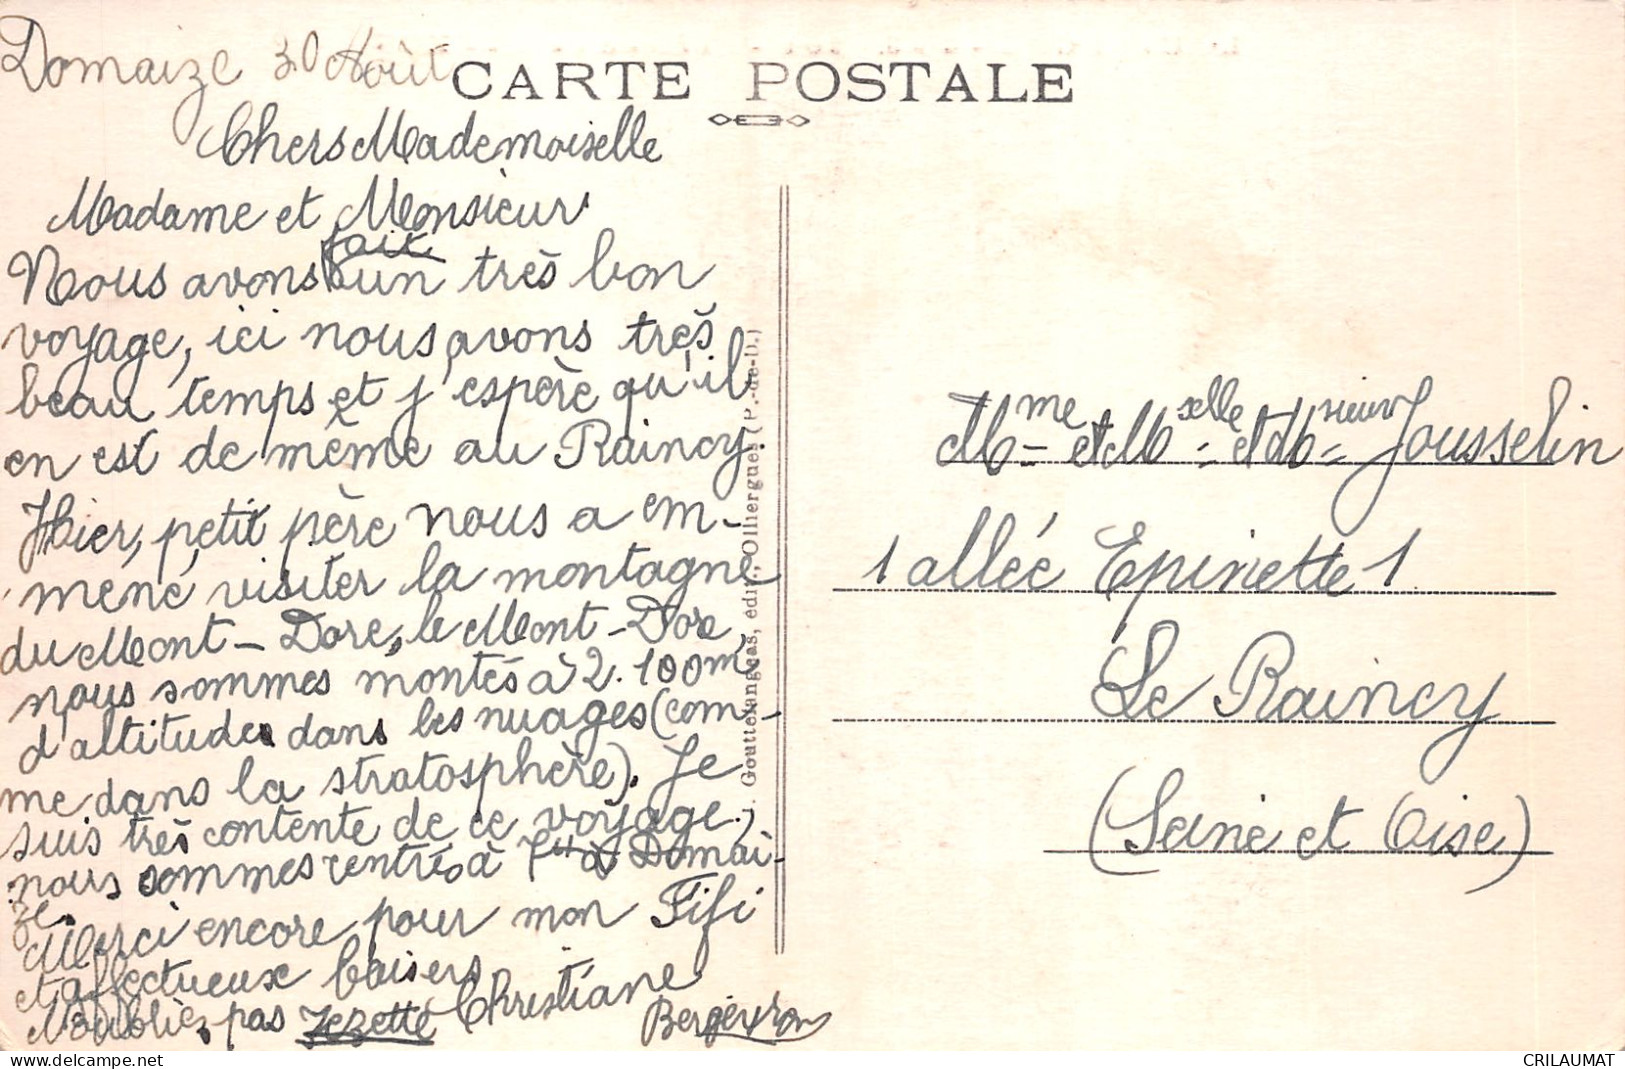 Domaize 30 Août
CARTE POSTALE
Chers Mademoiselle
Madame et Monsieur
fait
Nous avons un très bon
voyage, ici nous avons très
beau temps et j'espère qu'il
en est de même au Raincy.
Hier, petit père nous a em-
mené visiter la montagne
du Mont-Dore, le Mont-Dore,
nous sommes montés à 2.100m
d'altitudes dans les nuages (com-
me dans la stratosphère). Je
suis très contente de ce voyage.
nous sommes rentrés à 7h à Domai-
ze.
Merci encore pour mon Fifi
et affectueux baisers
N'oubliez pas Zezette Christiane
Bergeyron
Gouttefangeas, édit., Olliergues (P.-de-D.)
Mme et Mselle et Msieur Jousselin
1 allée Epinette 1
Le Raincy
(Seine et Oise)
CRILAUMAT
www.delcampe.net